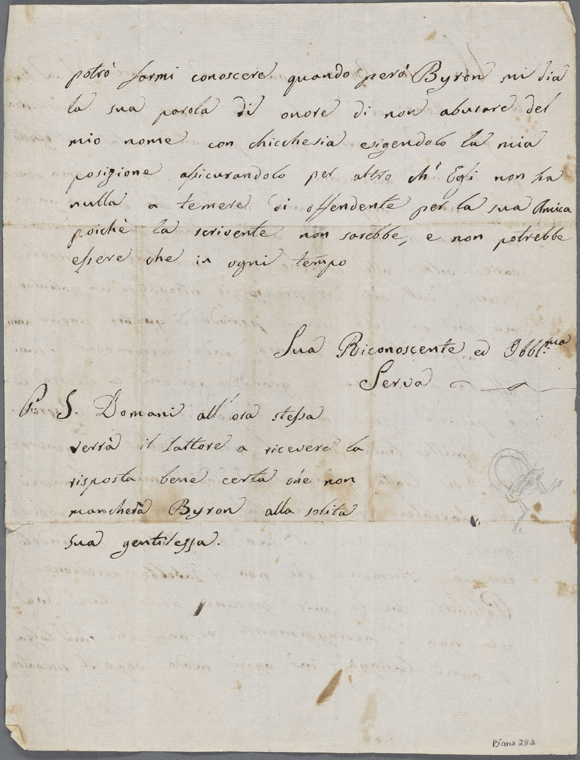 potrò farmi conoscere quando però Byron mi dia
la sua parola di onore di non abusare del
mio nome con chicchesia esigendolo la mia
posizione assicurandolo per altro ch' Egli non ha
nulla a temere di offendente per la sua Amica
poichè la scrivente non sarebbe, e non potrebbe
essere che in ogni tempo
Sua Riconoscente ed Obbl.ma
Serva
P. S. Domani all' ora stessa
verrà il lattore a ricevere la
risposta bene certa che non
mancherà Byron alla solita
sua gentilessa.
B'ana 282